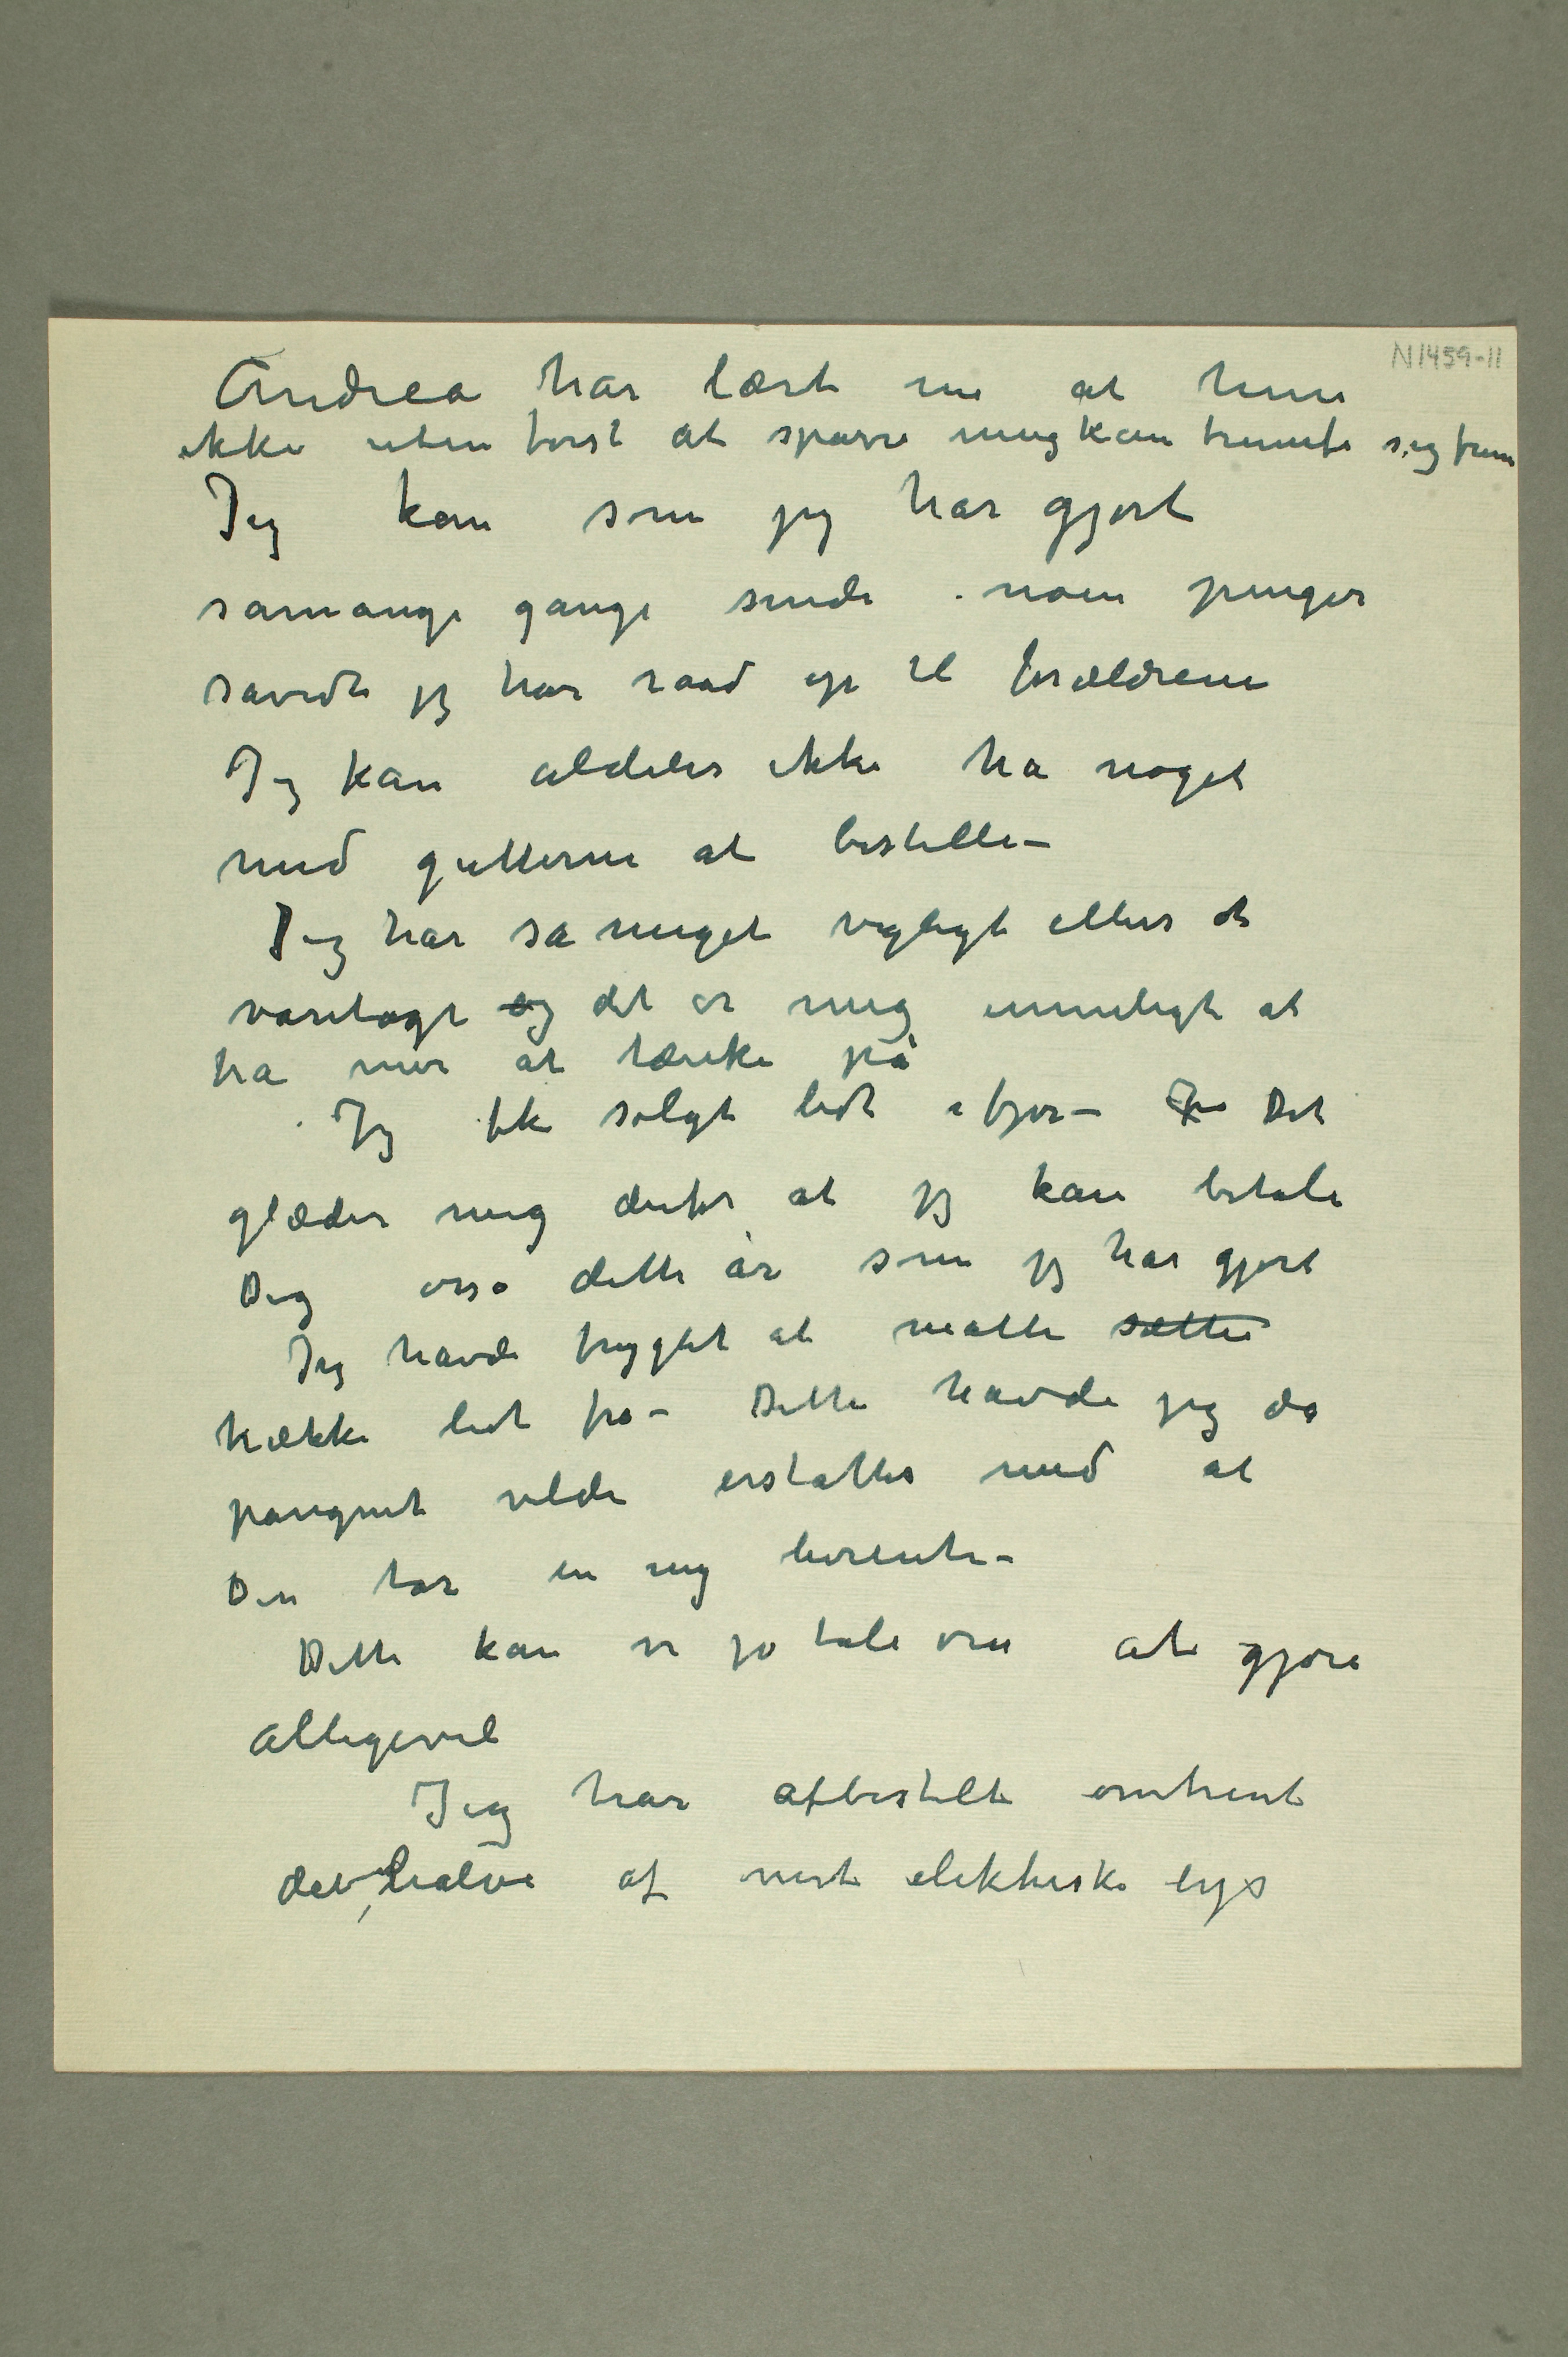 N1459-11
Andrea har lært nu at hun
ikke uten først at spørre mig kan trumfe sig frem
Jeg kan som jeg har gjort
såmange gange sende noen penger
såvidt jeg har raad op til forældrene
Jeg kan aldeles ikke ha noget
med gutterne at bestille –
Jeg har så meget vigtigt ellers at
varetage og det er mig umuligt at
ha mer at tænke på
Jeg fik solgt lidt ifjor – Det
glæder mig derfor at jeg kan betale
Dig osså dette år som jeg har gjort
Jeg havde frygtet at måtte sætte
trække lidt fra – Dette havde jeg da
påregnet vilde erstattes med at
Du tar en ny leirente –
Dette kan vi jo tale om at gjøre
alligevel
Jeg har afbestilt omtrent
det halve af mit elektriske lys